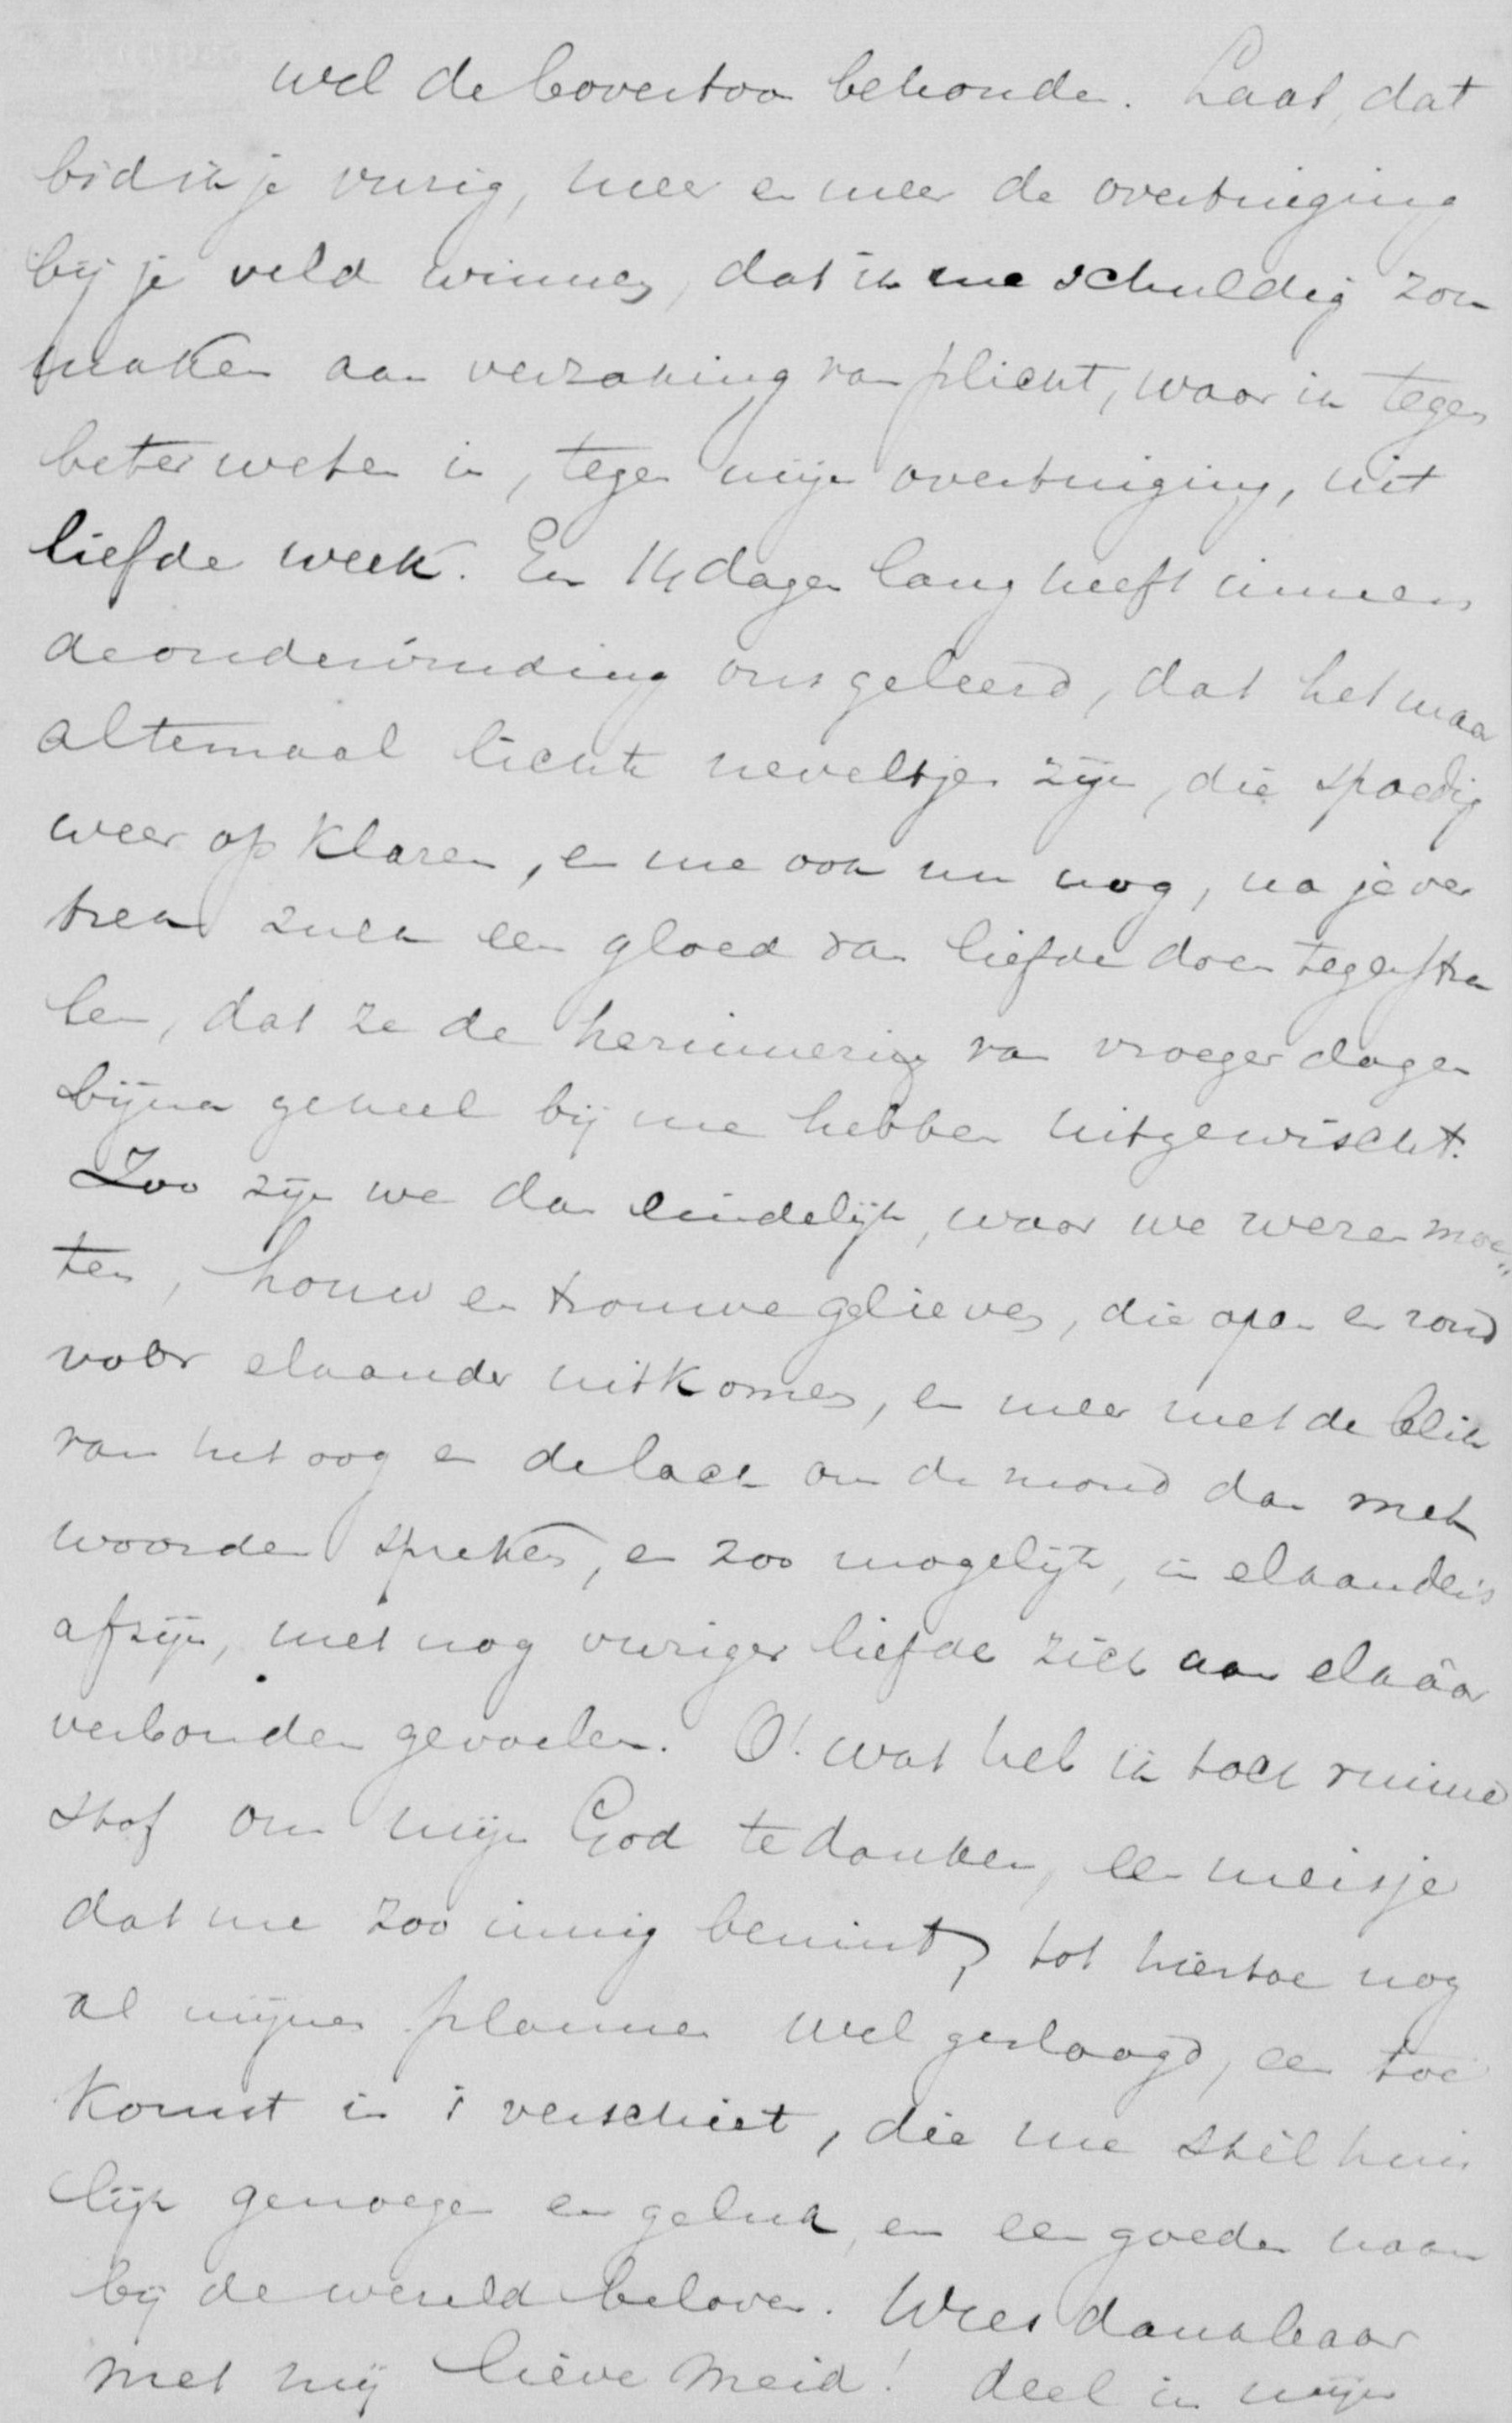 wel de boventoon behouden. Laat, dat
bid ik je vurig, meer en meer de overtuiging
bij je veld winnen, dat ik me schuldig zou
maken aan verzaking van plicht, waar ik tegen
beter weten in, tegen mijn overtuiging, uit
liefde week. En 14 dagen lang heeft immers
de ondervinding ons geleerd, dat het maar
altemaal lichte neveltjes zijn, die spoedig
weer op klaren, en me ook nu nog, na je ver
trek zulk een gloed van liefde doen tegenstra
len, dat ze de herinnering van vroeger dagen
bijna geheel bij me hebben uitgewischt.
Zoo zijn we dan eindelijk, waar we wezen moe„
ten, houw en trouwe gelieven, die open en rond
voor elkaander uitkomen, en meer met de blik
van het oog en de lach om de mond dan met
woorden spreken, en zoo mogelijk, in elkaanders
afzijn, met nog vuriger liefde zich aan elkâar
verbonden gevoelen. O! wat heb ik toch ruime
stof om mijn God te danken, een meisje
dat me zoo innig bemint, tot hiertoe nog
al mijne plannen wel geslaagd, een toe
komst in 't verschiet, die me stil huis
lijk genoegen en geluk, en een goeden naam
bij de wereld beloven. Wees dankbaar
met mij lieve meid! deel in mijn